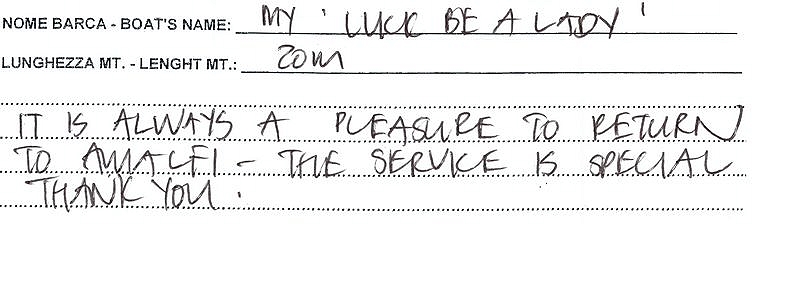 NOME BARCA - BOAT'S NAME: MY 'LUCK BE A LADY'
LUNGHEZZA MT. - LENGHT MT.: 20m
IT IS ALWAYS A PLEASURE TO RETURN
TO AMALFI - THE SERVICE IS SPECIAL
THANK YOU.